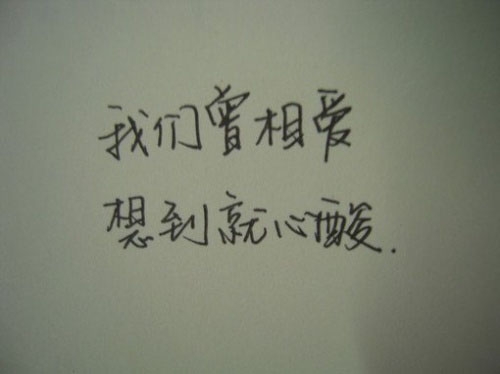 我们曾相爱
想到就心酸.